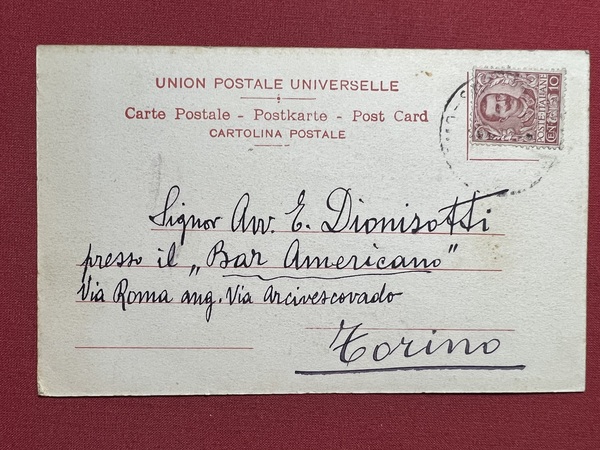 UNION POSTALE UNIVERSELLE
Carte Postale - Postkarte - Post Card
CARTOLINA POSTALE
POSTE ITALIANE
CENT. 10
Signor Avv. E. Dionisotti
presso il „Bar Americano"
Via Roma ang. Via Arcivescovado
Torino